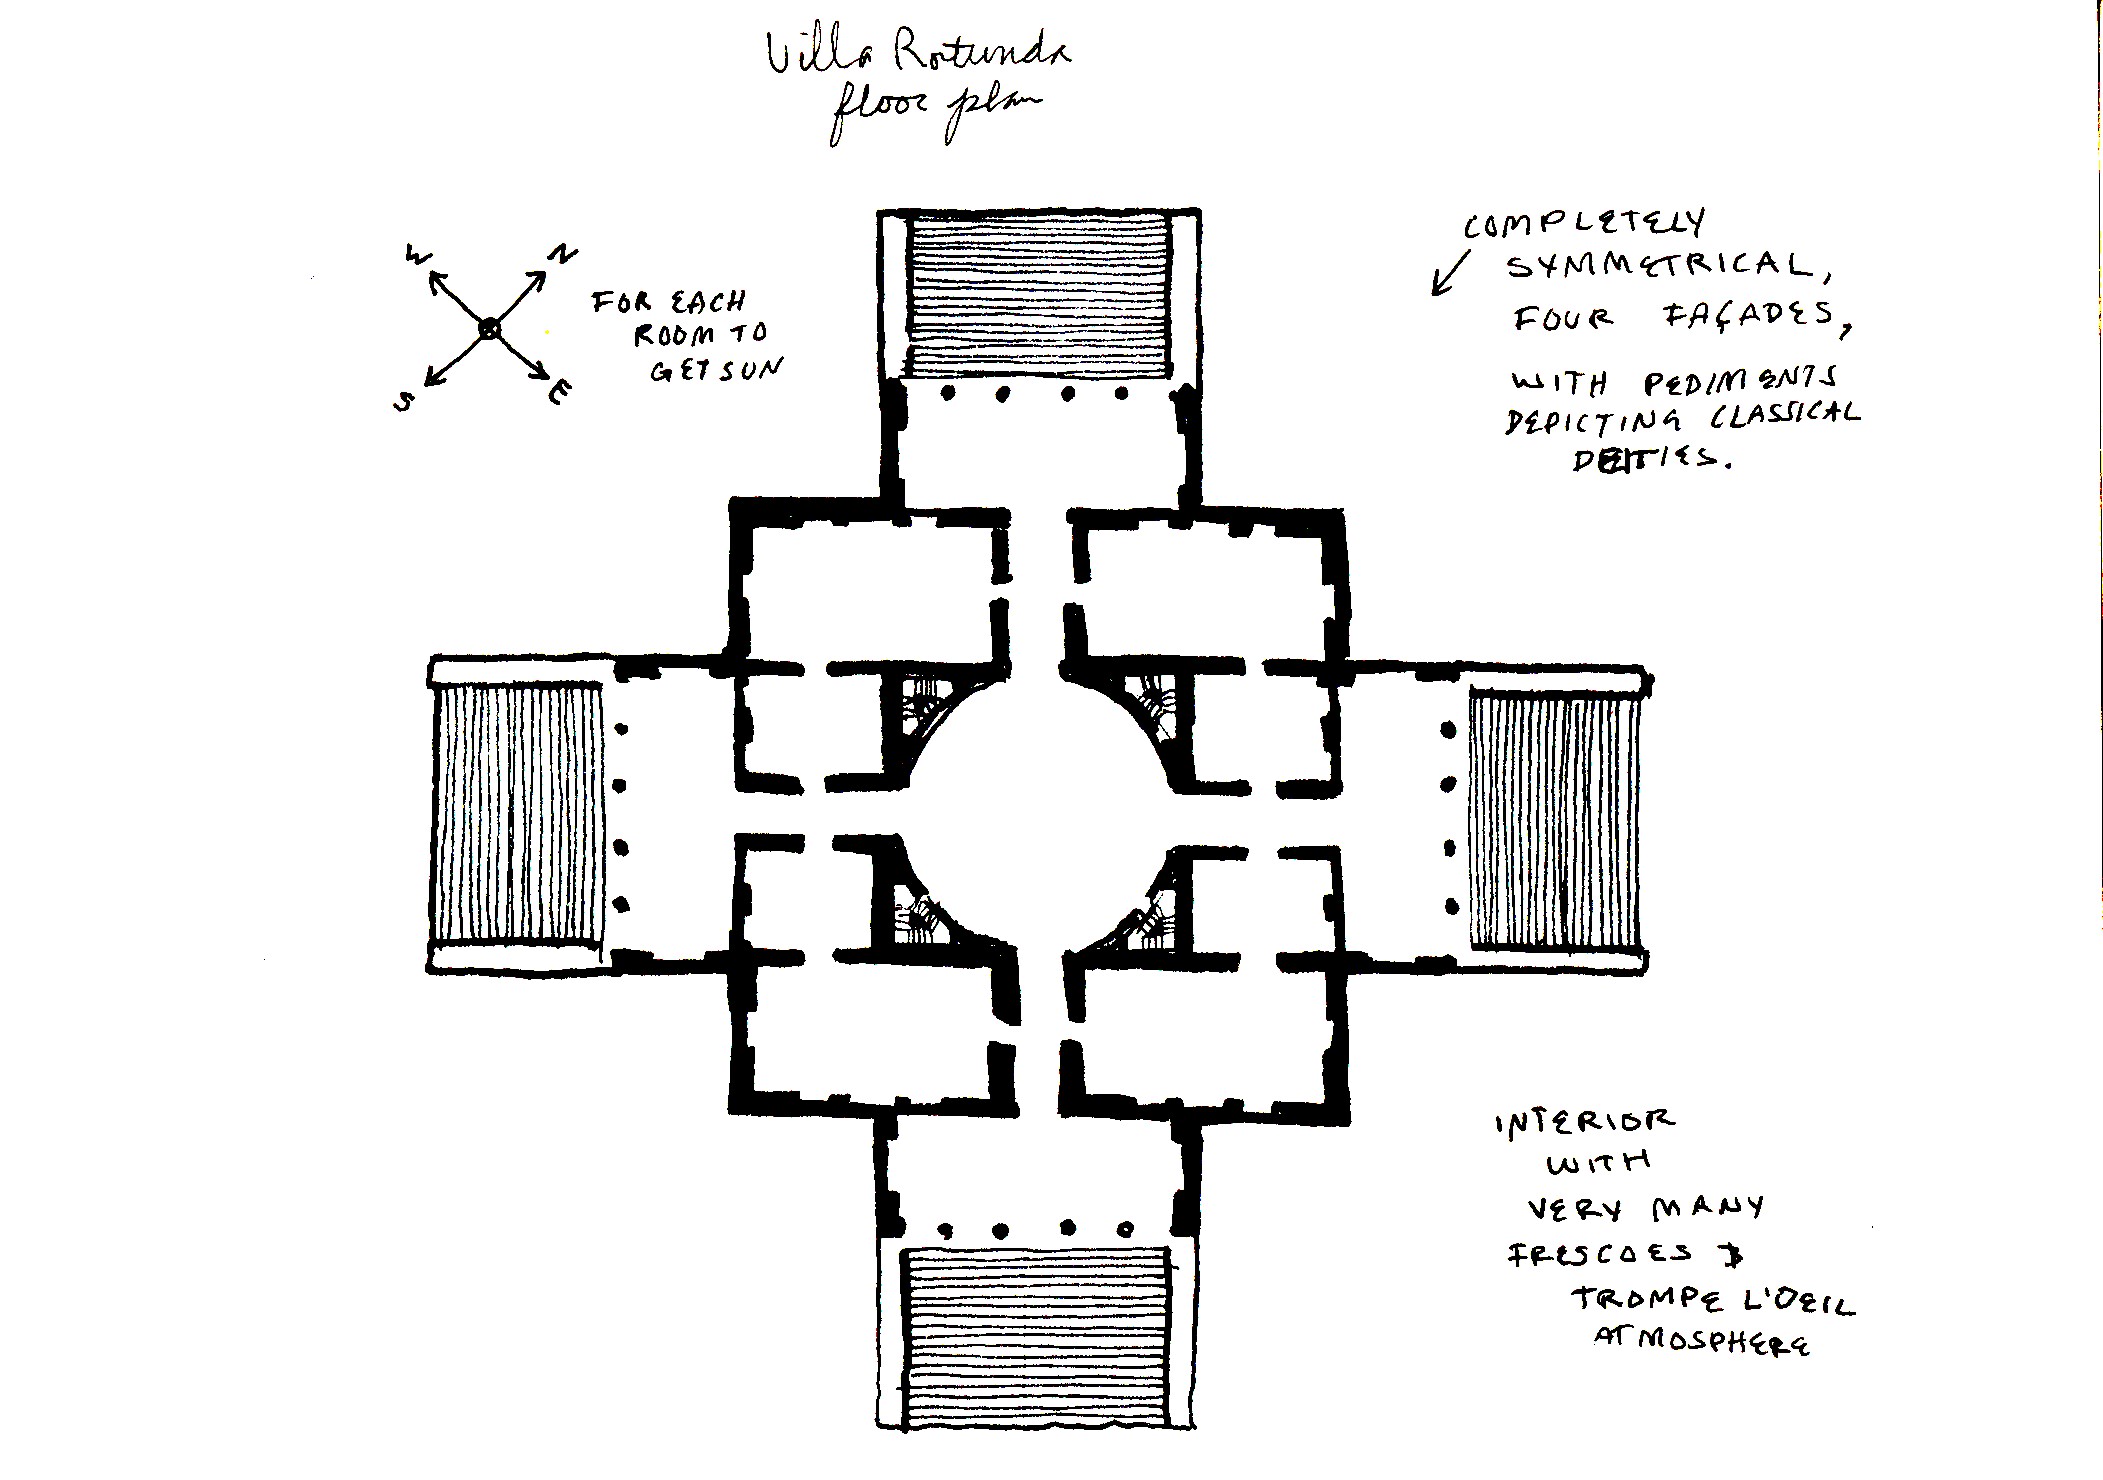 Villa Rotunda
floor plan
W
N
S
E
FOR EACH
ROOM TO
GET SUN
COMPLETELY
SYMMETRICAL,
FOUR FAÇADES,
WITH PEDIMENTS
DEPICTING CLASSICAL
DEITIES.
INTERIOR
WITH
VERY MANY
FRESCOES &
TROMPE L'OEIL
ATMOSPHERE